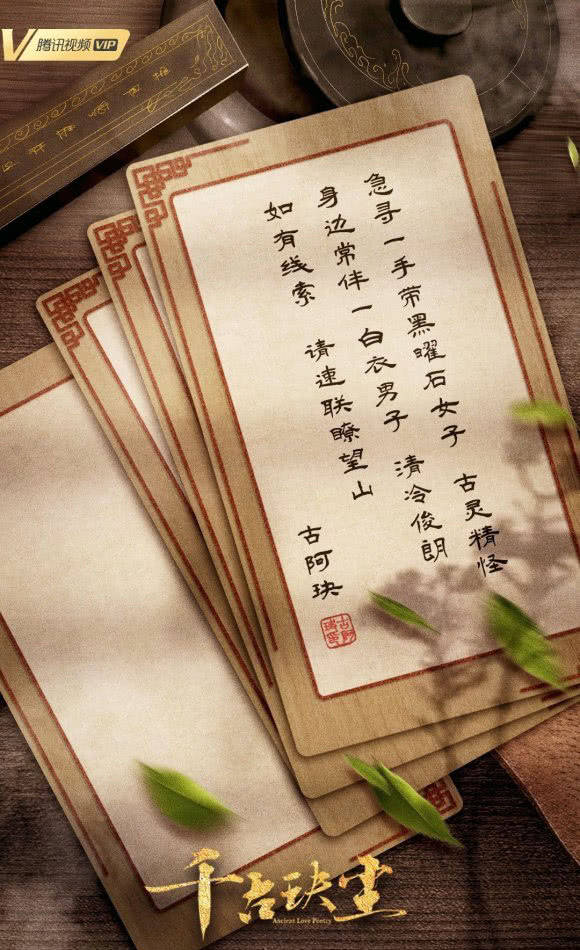 腾讯视频 VIP
急寻一手带黑曜石女子 古灵精怪
身边常伴一白衣男子 清冷俊朗
如有线索 请速联瞭望山
古阿玦
千古玦尘
Ancient Love Poetry